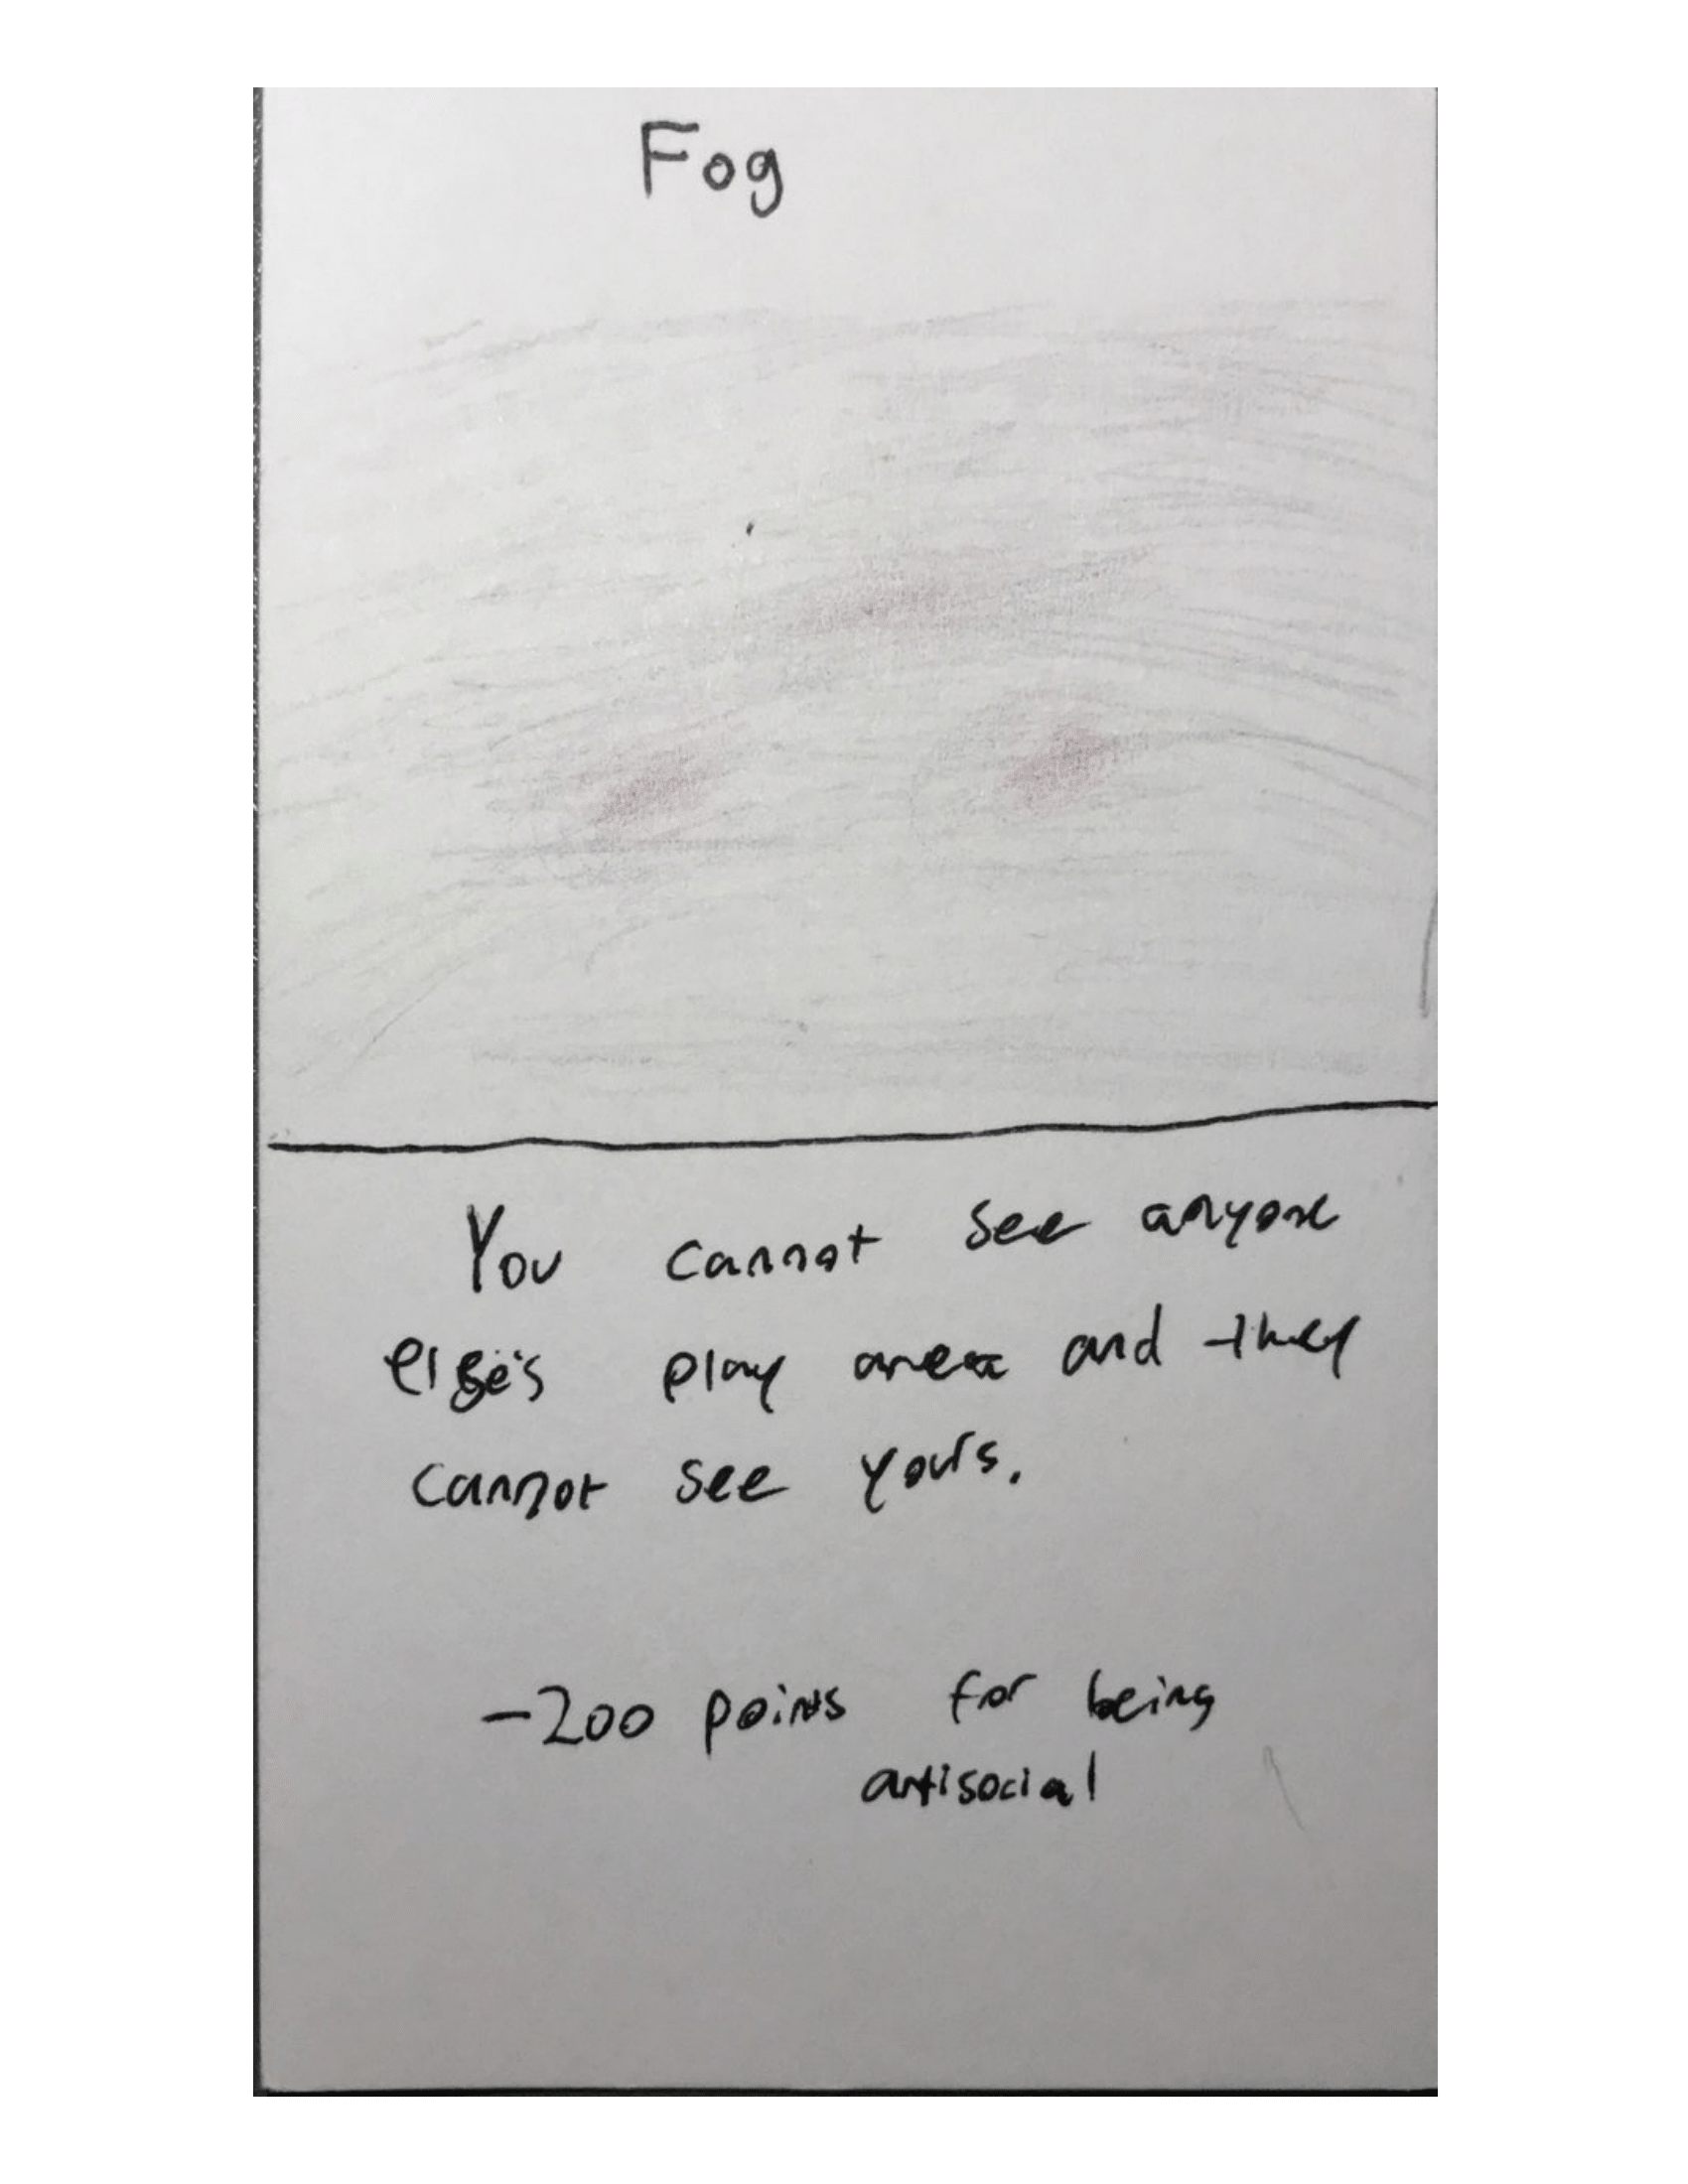 Fog
You cannot see anyone
else's play area and they
cannot see yours.
-200 points for being
antisocial